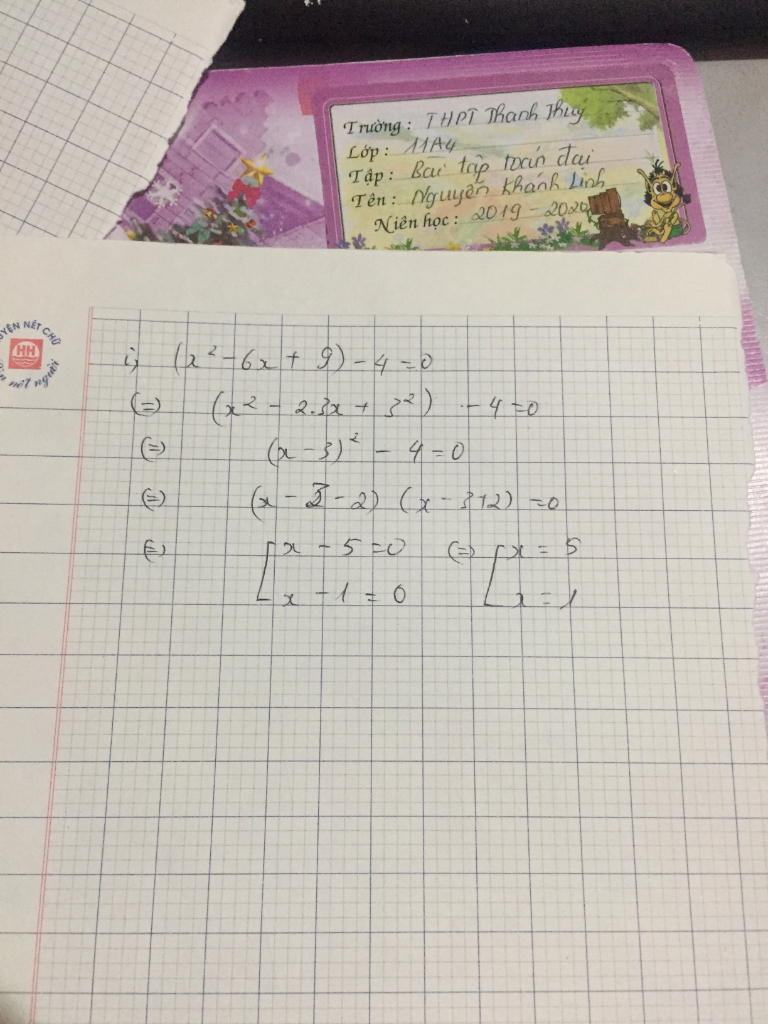 Trường : THPT Thanh Thuỷ
Lớp : 11A4
Tập : Bài tập toán đại
Tên : Nguyễn Khánh Linh
Niên học : 2019 - 2020
HH
nết người
i, (x² - 6x + 9) - 4 = 0
(=) (x² - 2.3x + 3²) - 4 = 0
(=) (x - 3)² - 4 = 0
(=) (x - 3 - 2) (x - 3+2) = 0
(=) [ x - 5 = 0 (=) [ x = 5
x - 1 = 0 x = 1